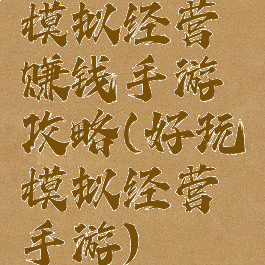 模拟经营
赚钱手游
攻略(好玩
模拟经营
手游)